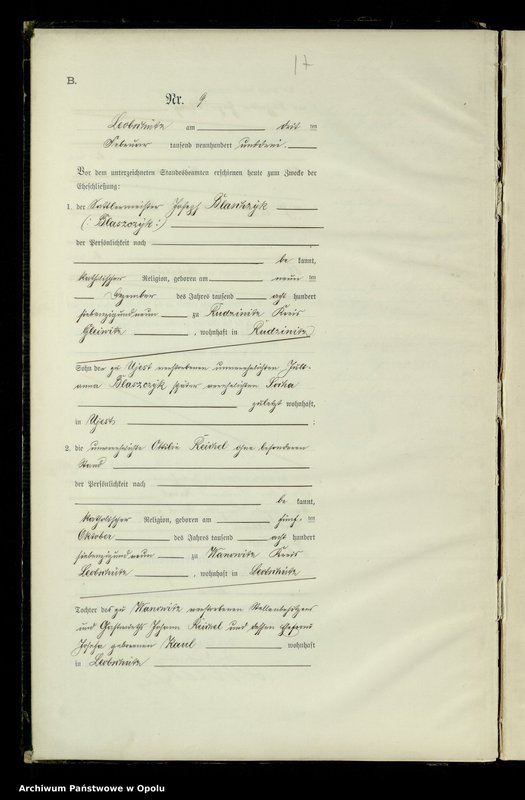 17
B.
Nr. 9
Leobschütz am dritten
Februar tausend neunhundert und drei.
Vor dem unterzeichneten Standesbeamten erschienen heute zum Zwecke der
Eheschließung:
1. der Sattlermeister Joseph Blaszczyk
(: Blaszczyk :)
der Persönlichkeit nach
be kannt,
katholischer Religion, geboren am neun ten
Dezember des Jahres tausend acht hundert
siebenzig und neun zu Rudzinitz Kreis
Gleiwitz, wohnhaft in Rudzinitz
Sohn der zu Ujest verstorbenen unverehelichten Juli-
anna Blaszczyk später verehelichten
zuletzt wohnhaft,
in Ujest ;
2. die unverehelichte Ottilie Reichel ohne besonderen
Stand
der Persönlichkeit nach
be kannt,
katholischer Religion, geboren am fünf ten
Oktober des Jahres tausend acht hundert
siebenzig und neun zu Wanowitz Kreis
Leobschütz, wohnhaft in Leobschütz
Tochter des zu Wanowitz verstorbenen Stellenbesitzers
und Johann Reichel und dessen Ehefrau
Josepha geborenen wohnhaft
in Leobschütz
Archiwum Państwowe w Opolu